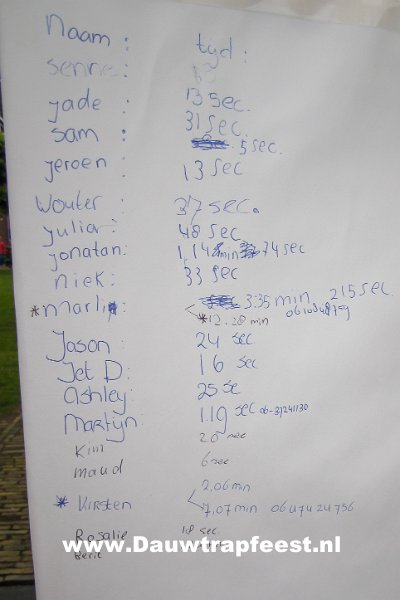 Naam: tijd:
senne: 13
jade: 13 sec.
sam: 31 sec.
5 sec.
jeroen: 13 sec
wouter: 37 sec.
julia: 48 sec
jonatan: 1,14 min 74 sec
niek: 33 sec
* marlij: 3:35 min 215 sec.
*12.38 min
Jason: 24 sec
Jet D: 16 sec
Ashley: 25 se
Martijn: 119 sec 06-37241130
Kim 20 sec
maud 6 sec
2,06 min
* Kirsten 7,07 min 0647424756
Rosalie 18 sec.
www.Dauwtrapfeest.nl